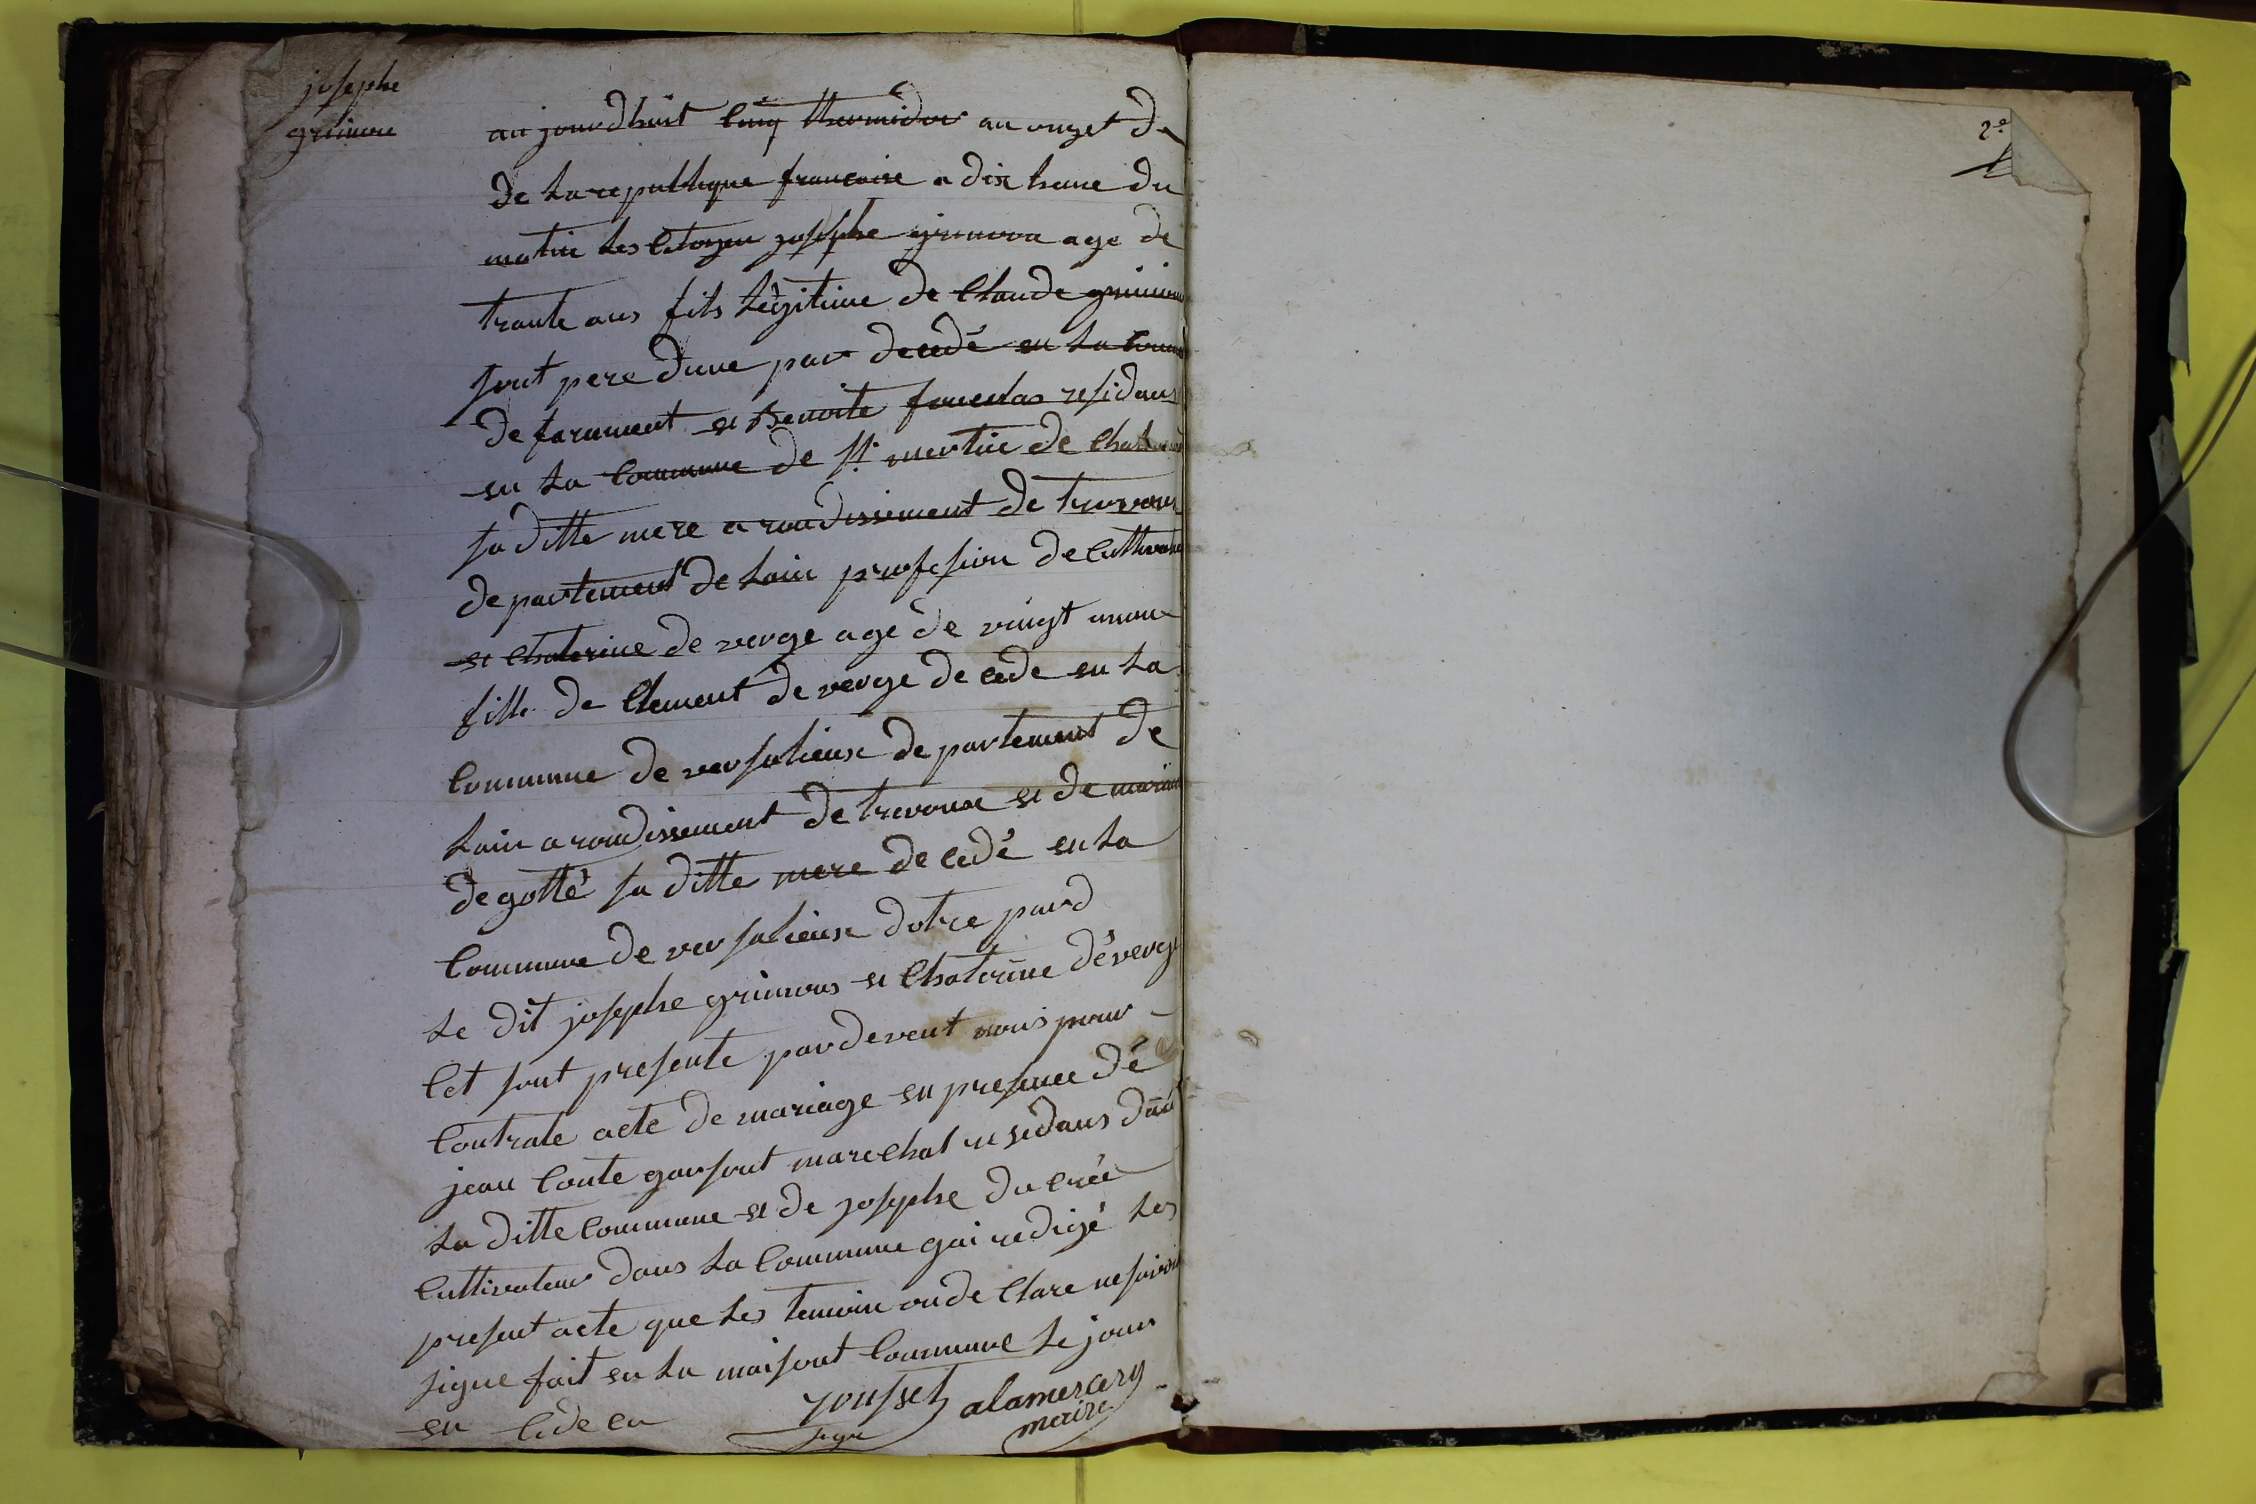 josephe
grimon
au jourdhuit cinq thermidor an onzet de
de La republique francaise a dix heure du
matin les Citoyen josephe grimon age de
trante ans fils Légitime de Claude grimon
sont pere dune par decedé en La Comm
de faramant et Benoite residans
en La Commune de st mertin de Chalamon
sa ditte mere arondissement de trevoux
departement de Lain profesion de Cultivateur
et Chaterine deverge age de vingt
fille de Clement deverge decede en La
Commune de versalieux departement de
Lain arondissement de trevoux et de marian
degotté sa ditte mere decedé en La
Commune de versalieux dotre pard
Le dit josephe grimon et Chaterine déverge
Cet sont presente pardevent nous pour
Contrate acte de mariage en presence dé
jean Conte garsont marechal residans dans
La ditte Commune et de josephe du cree
Cultivateur dans La Commune gai redigé Les
present acte que Les temoin on de Clare ne savoir
signe fait en La maisont Commune Le jour
en
jousset alamercery
maire
2e